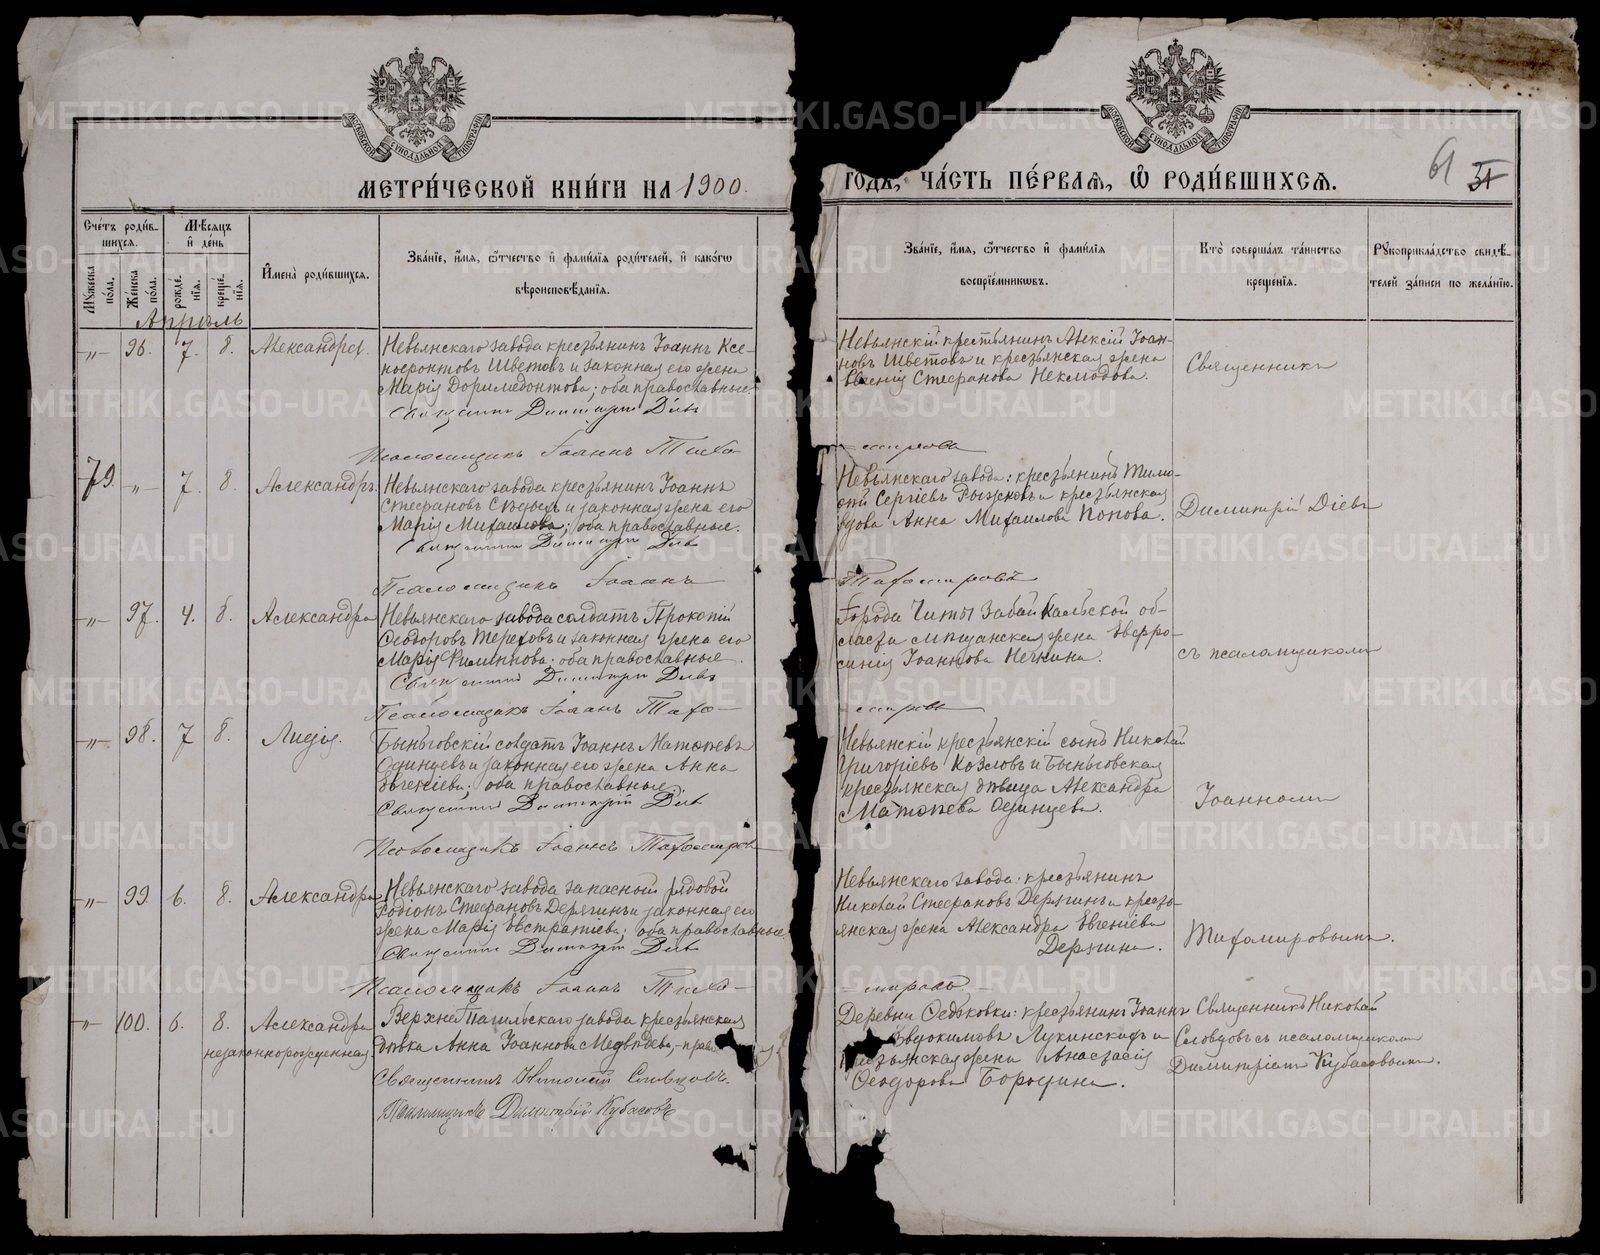 МЕТРИ́ЧЕСКОЙ КНИ́ГИ НА 1900.
ГОДЪ, ЧА́СТЬ ПЕ́РВАЯ, Ѡ РОДИ́ВШИХСЯ.
61 31
МОСКОВСКОЙ СѴНОДАЛЬНОЙ ТИПОГРАФІИ
МОСКОВСКОЙ СѴНОДАЛЬНОЙ ТИПОГРАФІИ
Сче́тъ роди́в-
шихся.
Му́жеска по́ла.
Же́нска по́ла.
Мѣ́сяцъ и де́нь
рожде́нія.
креще́нія.
Имена̀ роди́вшихся.
Зва́ніе, и́мя, ѻ́тчество и фами́лія роди́телей, и како́гѡ
вѣроисповѣ́данія.
Зва́ніе, и́мя, ѻ́тчество и фами́лія
воспріе́мникѡвъ.
Кто̀ соверша́лъ та́инство
креще́нія.
Рукоприкла́дство свидѣ́-
телей за́писи по жела́нію.
Апрѣль
-"- 96. 7. 8. Александра.
Невьянскаго завода крестьянинъ Іоаннъ Ксе-
нофонтовъ Шветовъ и законная его жена
Марія Доримедонтова; оба православные.
Священникъ Димитрій Діевъ
Псаломщикъ Іоаннъ Тихо-
Невьянскій крестьянинъ Алексій Іоан-
новъ Шветовъ и крестьянская жена
Евгенія Стефанова Неклюдова.
Священникъ
-мировъ
79. -"- 7. 8. Александръ.
Невьянскаго завода крестьянинъ Іоаннъ
Стефановъ и законная жена его
Марія Михаилова; оба православные.
Священникъ Димитрій Діевъ
Псаломщикъ Іоаннъ
Невьянскаго завода: крестьянинъ Тимо-
ѳей Сергіевъ Рыжковъ и крестьянская
вдова Анна Михаилова Попова.
Димитрій Діевъ
Тихомировъ
-"- 97. 4. 8. Александра
Невьянскаго завода солдатъ Прокопій
Ѳеодоровъ Тереховъ и законная жена его
Марія Филиппова; оба православные.
Священникъ Димитрій Діевъ
Псаломщикъ Іоаннъ Тихо-
Города Читы Забайкальской об-
ласти мѣщанская жена Евфро-
синія Іоаннова Нечкина.
съ псаломщикомъ
-мировъ
-"- 98. 7 8. Лидія.
Быньговскій солдатъ Іоаннъ Матѳеевъ
Одинцевъ и законная его жена Анна
Евгеніева; оба православные.
Священникъ Димитрій Діевъ
Псаломщикъ Іоаннъ Тихомировъ
Невьянскій крестьянскій сынъ Николай
Григоріевъ Козловъ и Быньговская
крестьянская дѣвица Александра
Матѳеева Одинцева.
Іоанномъ
-"- 99 6. 8. Александра
Невьянскаго завода запасный рядовой
Родіонъ Стефановъ Дерягинъ и законная его
жена Марія Евстратіева; оба православные.
Священникъ Димитрій Діевъ
Псаломщикъ Іоаннъ Тихо-
Невьянскаго завода: крестьянинъ
Николай Стефановъ Дерягинъ и кресть-
янская жена Александра Евгеніева
Дерягина.
Тихомировымъ.
-мировъ.-
-"- 100. 6. 8. Александра
незаконнорожденная.
Верхне Тагильскаго завода крестьянская
дѣвка Анна Іоаннова Медвѣдева, - прав
Священникъ Николай Словцовъ.
Псаломщикъ Димитрій Кубасовъ
Деревни Ѳедьковки: крестьянинъ Іоаннъ
Евдокимовъ Лукинскихъ и
крестьянская жена Анастасія
Ѳеодорова Бородина.
Священникъ Николай
Словцовъ съ псаломщикомъ
Димитріемъ Кубасовымъ.
METRIKI.GASO-URAL.RU